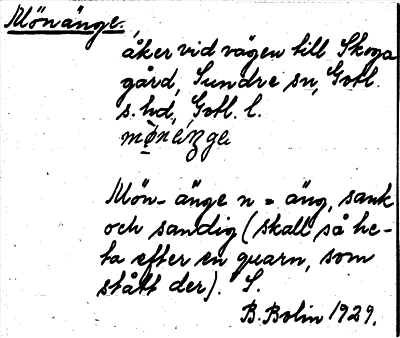 Mönänge.
åker vid vägen till Skoga
gård, Sundre sn, Gotl.
s. hd, Gotl. l.
Mön-änge n = äng, sank
och sandig (skall så he-
ta efter en quarn, som
stått der). S.
B. Bolin 1929.